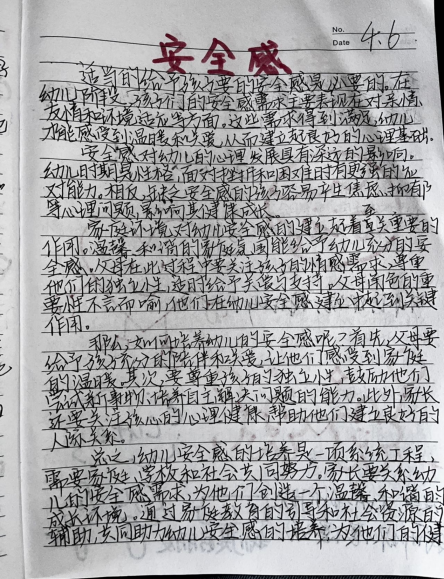 No.
Date 4.6
安全感
适当的给予孩子要的安全感是必要的。在
幼儿阶段,孩子们的安全感需求主要表现在对亲情
友情和环境适应等方面。这些需求得到满足,幼儿
才能感受到温暖和关爱,从而建立起良好的心理基础.
安全感对幼儿的心理发展具有深远的影响。
幼儿时期具性格,面对挫折和困难时有更强的应
对能力。相反,缺乏安全感的孩子容易产生焦虑、抑郁
等心理问题,影响其健康成长。
家庭环境对幼儿安全感的建立起着至关重要的
作用。温馨、和谐的家庭氛围能给予幼儿充分的安
全感。父母在此过程中要关注孩子的情感需求,尊重
他们的独立性,适时给予关爱与支持。父母角色的重
要性不言而喻,他们在幼儿安全感建立中起到关键
作用。
那么,如何培养幼儿的安全感呢?首先,父母要
给予孩子充分的陪伴和关爱,让他们感受到家庭
的温暖。其次,要尊重孩子的独立性,鼓励他们
尝试新事物,培养自主解决问题的能力。此外,家长
还要关注孩子的心理健康,帮助他们建立良好的
人际关系。
总之,幼儿安全感的培养是一项系统工程,
需要家庭、学校和社会共同努力。家长要关注幼
儿的安全感需求,为他们创造一个温馨、和谐的
成长环境。通过家庭教育的引导和社会资源的
辅助,共同助力幼儿安全感的培养,为他们的健